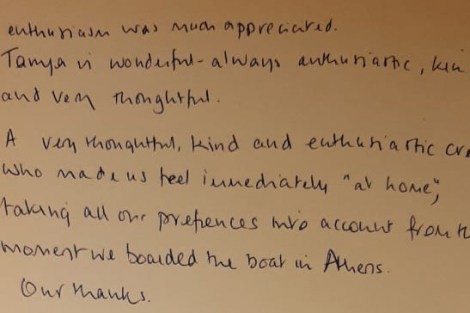 enthusiasm was much appreciated.
Tanya is wonderful - always enthusiastic, kin
and very thoughtful.
A very thoughtful, kind and enthusiastic cre
who made us feel immediately "at home",
taking all our prefences into account from th
moment we boarded the boat in Athens.
Our thanks.